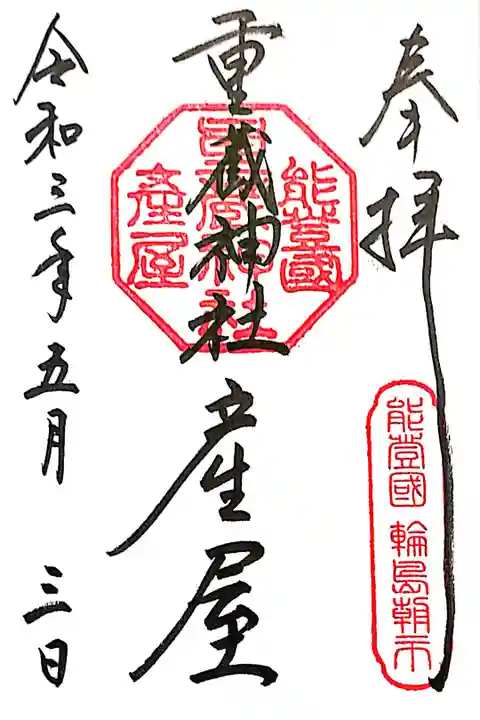 奉拝
能登國 輪島朝市
重蔵神社 産屋
能登國
重蔵神社
產屋
令和三年五月 三日